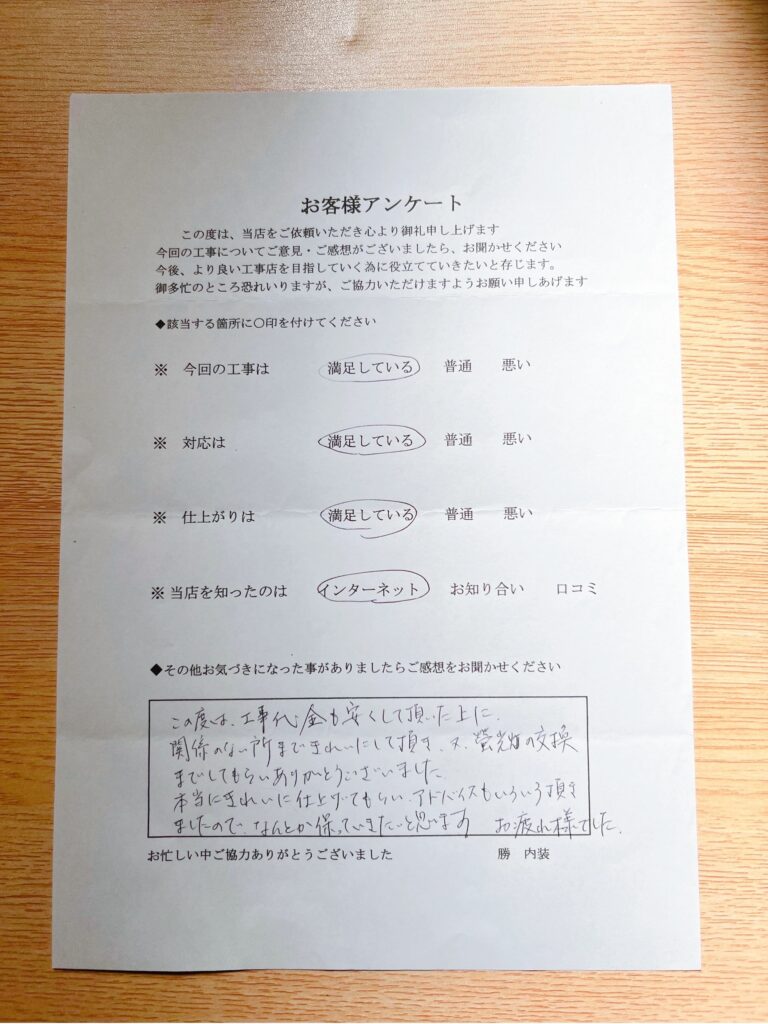 お客様アンケート
この度は、当店をご依頼いただき心より御礼申し上げます
今回の工事についてご意見・ご感想がございましたら、お聞かせください
今後、より良い工事店を目指していく為に役立てていきたいと存じます。
御多忙のところ恐れいりますが、ご協力いただけますようお願い申しあげます
◆該当する箇所に〇印を付けてください
※ 今回の工事は 満足している 普通 悪い
※ 対応は 満足している 普通 悪い
※ 仕上がりは 満足している 普通 悪い
※ 当店を知ったのは インターネット お知り合い 口コミ
◆その他お気づきになった事がありましたらご感想をお聞かせください
この度は、工事代金も安くして頂いた上に、
関係のない所まできれいにして頂き、又、螢光灯の交換
までしてもらいありがとうございました。
本当にきれいに仕上げてもらい、アドバイスもいろいろ頂き
ましたので、なんとか保っていきたいと思います お疲れ様でした。
お忙しい中ご協力ありがとうございました 勝 内装